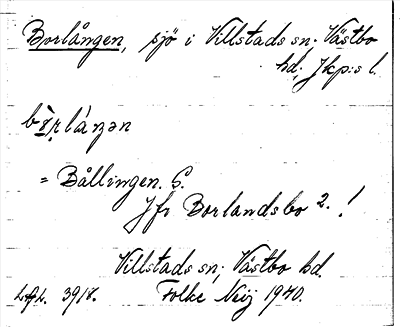 Borlången, sjö i Villstads sn. Västbo
hd. Jkp:s l.
= Bållingen. S.
Jfr Borlandsbo 2. !
Villstads sn, Västbo hd.
3918. Folke Neij 1940.